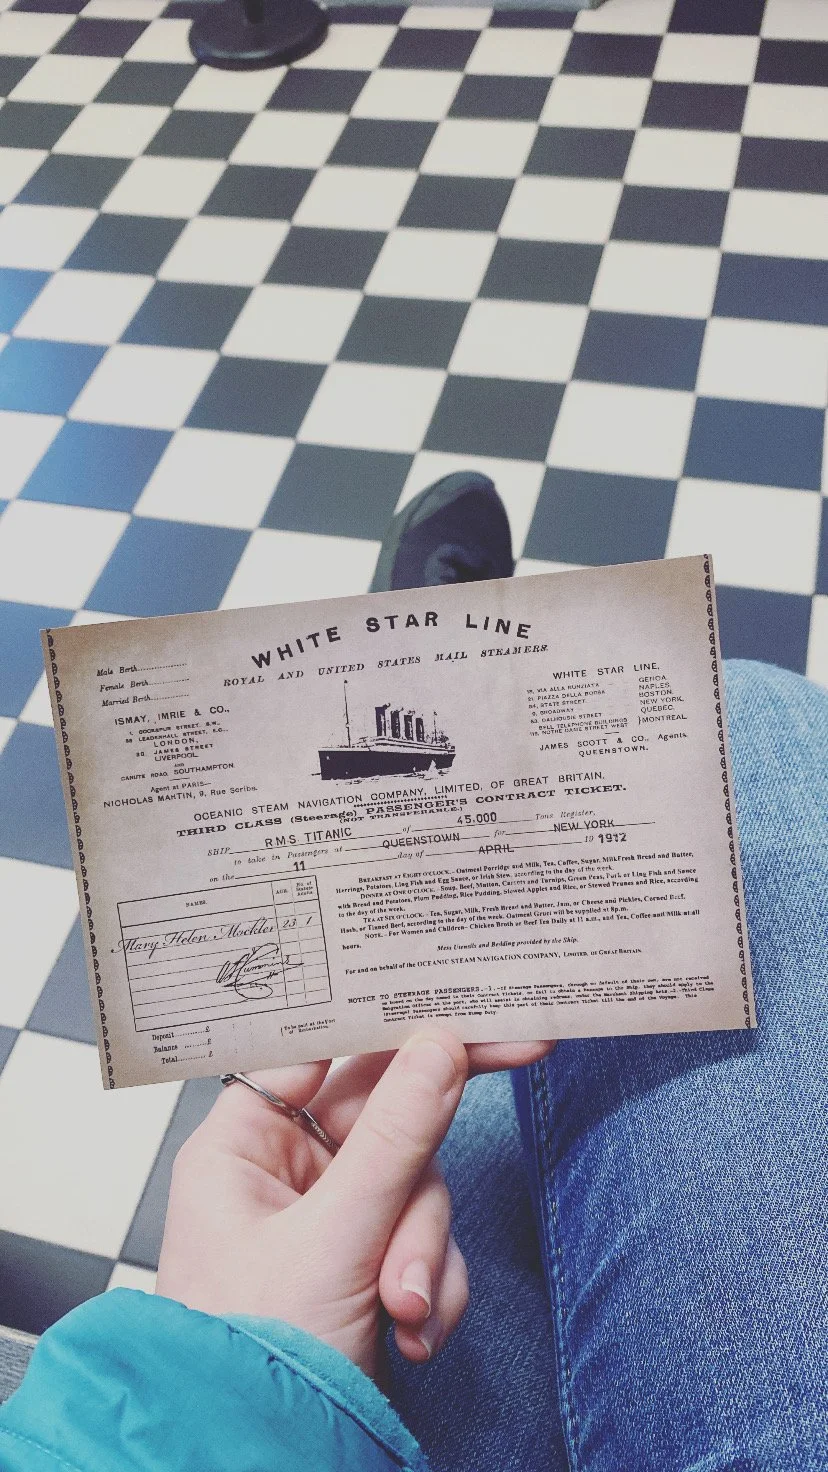 WHITE STAR LINE
ROYAL AND UNITED STATES MAIL STEAMERS.
Male Berth
Female Berth
Married Berth
ISMAY, IMRIE & CO.,
1, COCKSPUR STREET, S.W.,
38 LEADENHALL STREET, E.C.,
LONDON,
30, JAMES STREET
LIVERPOOL
AND
CANUTE ROAD, SOUTHAMPTON.
Agent at PARIS—
NICHOLAS MARTIN, 9, Rue Scribe.
WHITE STAR LINE,
21, PIAZZA DELLA BORSA
84, STATE STREET
9, BROADWAY
53, DALHOUSIE STREET
BELL TELEPHONE BUILDINGS
118, NOTRE DAME STREET WEST
GENOA.
NAPLES.
BOSTON.
NEW YORK.
QUEBEC.
MONTREAL
JAMES SCOTT & CO., Agents
QUEENSTOWN.
OCEANIC STEAM NAVIGATION COMPANY, LIMITED, OF GREAT BRITAIN.
THIRD CLASS (Steerage) PASSENGER'S CONTRACT TICKET.
(NOT TRANSFERABLE.)
SHIP RMS TITANIC of 45.000 Tons Register,
to take in Passengers at QUEENSTOWN for NEW YORK
on the 11 day of APRIL 19 1912
NAMES. AGE.
Mary Helen Mockler 23 1
Deposit £
Balance £
Total £
BREAKFAST AT EIGHT O'CLOCK.-Oatmeal Porridge and Milk, Tea, Coffee, Sugar, Milk Fresh Bread and Butter,
Herrings, Potatoes, Ling Fish and Egg Sauce, or Irish Stew, according to the day of the week.
DINNER AT ONE O'CLOCK.-Soup, Beef, Mutton, Carrots and Turnips, Green Peas, Pork or Ling Fish and Sauce
with Bread and Potatoes, Plum Pudding, Rice Pudding, Stewed Apples and Rice, or Stewed Prunes and Rice, according
to the day of the week.
TEA AT SIX O'CLOCK.-Tea, Sugar, Milk, Fresh Bread and Butter, Jam, or Cheese and Pickles, Corned Beef,
Hash, or Tinned Beef, according to the day of the week. Oatmeal Gruel will be supplied at 8p.m.
NOTE.-For Women and Children-Chicken Broth or Beef Tea Daily at 11 a.m., and Tea, Coffee and Milk at all
hours.
Mess Utensils and Bedding provided by the Ship.
For and on behalf of the OCEANIC STEAM NAVIGATION COMPANY, LIMITED, OF GREAT BRITAIN
NOTICE TO STEERAGE PASSENGERS.